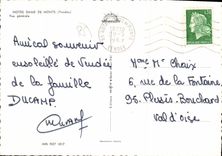 NOTRE DAME DE MONTS (Vendée)
Vue générale
Amical souvenir
ensoleillé de Vendée
de la famille
DUCAMP
Mme Mr Chaix
6 rue de la Fontaine
95. Plessis-Bouchard
Val d'oise